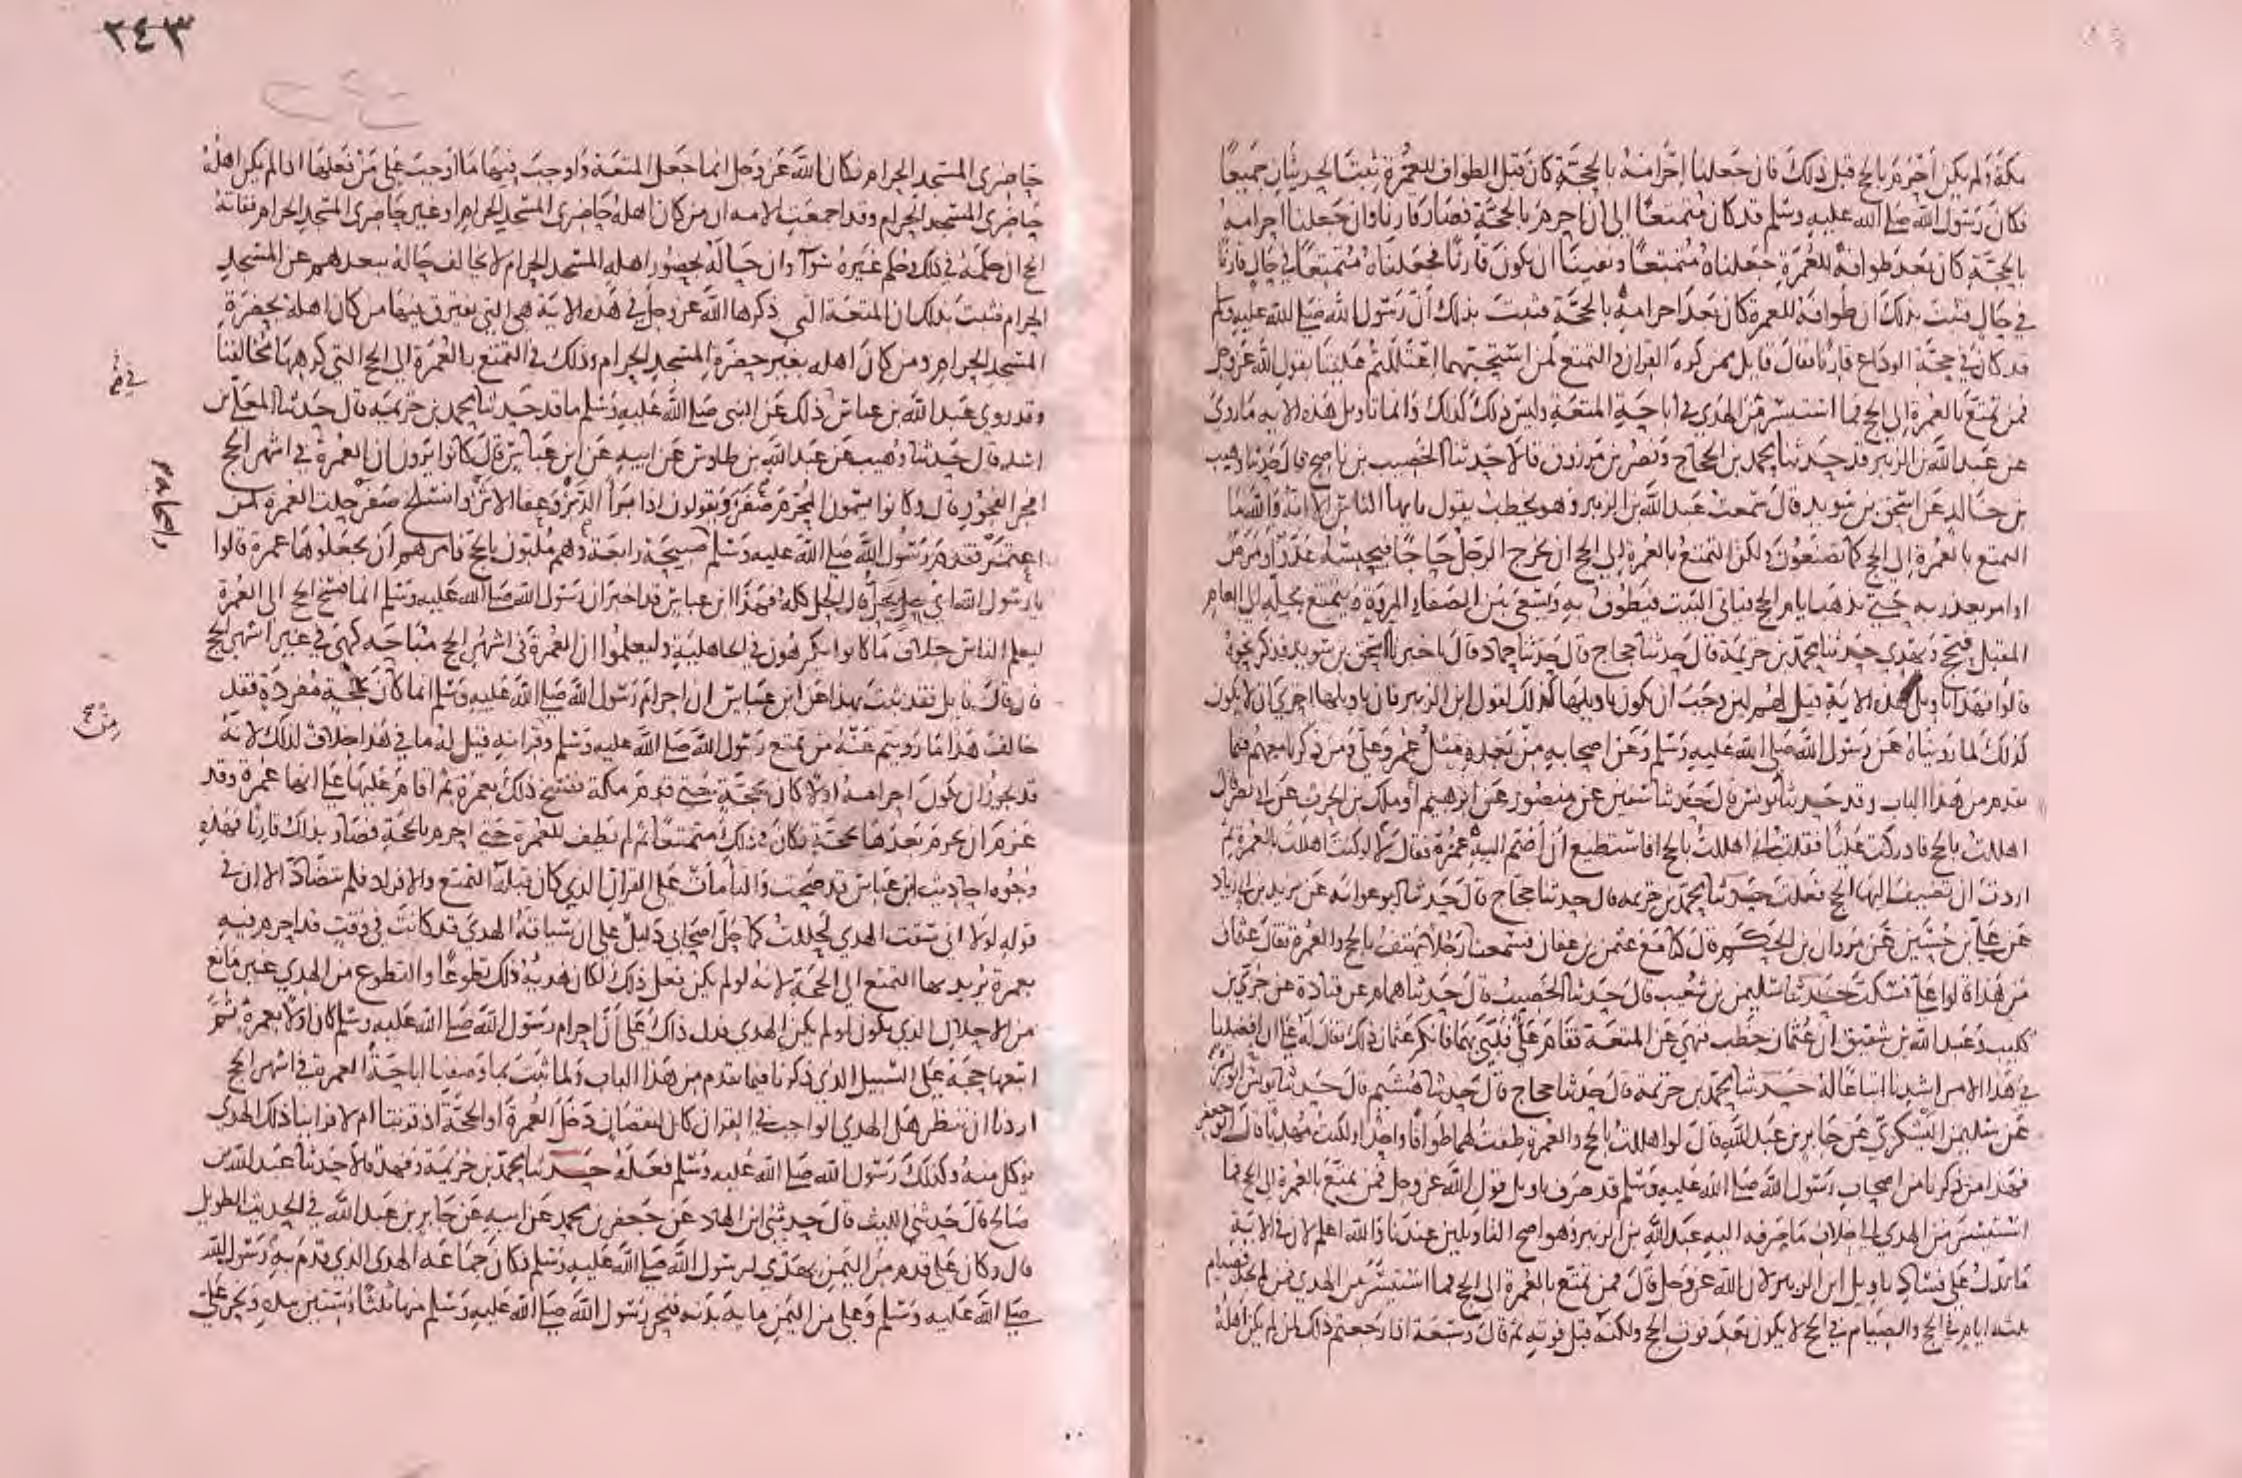 مكة ولم يكن أحرم بالحج قبل ذلك فان جعلنا إحرامه بالحجة كان قبل الطواف للعمرة ثبت الحديثان جميعًا
فكان رسول الله صلى الله عليه وسلم قد كان متمتعًا الى ان احرم بالحجة فصار قارنا وان جعلنا احرامه
بالحجة كان بعد طوافه للعمرة جعلناه متمتعًا ونفينا ان يكون قارنًا فجعلناه متمتعًا في حال قارنًا
في حال فثبت بذلك ان طوافه للعمرة كان بعد احرامه بالحجة فثبت بذلك أن رسول الله صلى الله عليه وسلم
قد كان في حجة الوداع قارنا فقال قايل ممن كره القران والتمتع لمن استحبهما اعتللتم علينا بقول الله عز وجل
فمن تمتع بالعمرة الى الحج فما استيسر من الهدي في اباحة المتعة وليس ذلك كذلك وانما تاويل هذه الاية ما روي
عن عبد الله بن الزبير قد حدثنا محمد بن الحجاج ونصر بن مرزوق قالا حدثنا الخصيب بن ناصح قال حدثنا وهيب
بن خالد عن اسحق بن سويد قال سمعت عبد الله بن الزبير وهو يخطب يقول يايها الناس الا انه والله ما
التمتع بالعمرة الى الحج كما تصنعون ولكن التمتع بالعمرة الى الحج ان يخرج الرجل حاجًا فيحبسه عدو او مرض
او امر يعذر به حتى تذهب ايام الحج فياتي البيت فيطوف به ويسعى بين الصفا و المروة ويتمتع بحله الى العام
المقبل فيحج ويهدي حدثنا محمد بن خزيمة قال حدثنا حجاج قال حدثنا حماد قال اخبرنا اسحق بن سويد فذكر نحوه
قالوا فهذا تاويل هذه الاية قيل لهم لين وجب ان يكون تاويلها كذلك لقول ابن الزبير فان تاويلها احرى ان لا يكون
كذلك لما رويناه عن رسول الله صلى الله عليه وسلم وعن اصحابه من بعده مثل عمر وعلي ومن ذكرنا معهم فيما
تقدم من هذا الباب وقد حدثنا يونس قال حدثنا سفين عن منصور عن ابرهيم او ملك بن الحرث عن ابي نصر قال
اهللت بالحج فادركت عليًا فقلت اني اهللت بالحج افاستطيع ان أضم اليه عمرة فقال لا لو كنت اهللت بالعمرة ثم
اردت ان تضيف اليها الحج فعلت حدثنا محمد بن خزيمه قال حدثنا حجاج قال حدثنا ابو عوانه عن يزيد بن ابي زياد
عن علي بن حسين عن مروان بن الحكم قال كنا مع عثمن بن عفان فسمعنا رجلا يهتف بالحج والعمرة فقال عثمان
من هذا قالوا علي فسكت حدثنا سليمن بن شعيب قال حدثنا الخصيب قال حدثنا همام عن قتادة عن جري بن
كليب وعبد الله بن شقيق ان عثمان خطب فنهى عن المتعة فقام علي فلبى بهما فانكر عثمان ذلك فقال له علي ان افضلنا
في هذا الامر اشدنا اتباعا له حدثنا محمد بن خزيمة قال حدثنا حجاج قال حدثنا هشيم قال حدثنا ابو بشر
عن سليمن اليشكري عن جابر بن عبد الله قال لو اهللت بالحج والعمرة طفت لهما طوافًا واحدًا ولكنت مهديًا قال ابو جعفر
فهذا من ذكرنا من اصحاب رسول الله صلى الله عليه وسلم قد صرف تاويل قول الله عز وجل فمن تمتع بالعمرة الى الحج فما
استيسر من الهدي الى خلاف ما صرفه اليه عبد الله بن الزبير وهو اصح التاويلين عندنا والله اعلم لان في الاية
ما يدل على فساد تاويل ابن الزبير لان الله عز وجل قال فمن تمتع بالعمرة الى الحج فما استيسر من الهدي فمن لم يجد فصيام
ثلثه ايام في الحج والصيام في الحج لا يكون بعد فوت الحج ولكنه قبل فوته ثم قال وسبعة اذا رجعتم ذلك لمن لم يكن اهله
٢٤٣
حاضرى المسجد الحرام فكان الله عز وجل انما جعل المتعة واوجب فيها ما اوجب على من فعلها اذا لم يكن اهله
حاضرى المسجد الحرام وقد اجمعت الامه ان من كان اهله حاضرى المسجد الحرام او غير حاضرى المسجد الحرام ففاته
الحج ان حكمه في ذلك وحكم غيره سوآ وان حاله بحضور اهله المسجد الحرام لا يخالف حاله ببعدهم عن المسجد
الحرام فثبت بذلك ان المتعة التي ذكرها الله عز وجل في هذه الاية هي التي يفترق فيها من كان اهله بحضرة
المسجد الحرام ومن كان اهله بغير حضرة المسجد الحرام وذلك في التمتع بالعمرة الى الحج التي كرهها مخالفنا
وقد روى عبد الله بن عباس ذلك عن النبي صلى الله عليه وسلم ما قد حدثنا محمد بن خزيمه قال حدثنا المعلى بن
اسد قال حدثنا وهيب عن عبد الله بن طاوس عن ابيه عن ابن عباس قال كانوا يرون ان العمرة في اشهر الحج
افجر الفجور قال وكانوا يسمون المحرم صفر ويقولون اذا برأ الدبر وعفا الاثر وانسلخ صفر حلت العمرة لمن
اعتمر فقدم رسول الله صلى الله عليه وسلم صبيحة رابعة وهم ملبون بالحج فامرهم أن يجعلوها عمرة قالوا
يا رسول الله اي حل يحل قال الحل كله فهذا ابن عباس قد اخبر ان رسول الله صلى الله عليه وسلم انما فسخ الحج الى العمرة
ليعلم الناس خلاف ما كانوا يكرهون في الجاهلية وليعلموا ان العمرة في اشهر الحج مباحه كهي في غير اشهر الحج
فان قال قايل فقد ثبت بهذا عن ابن عباس ان احرام رسول الله صلى الله عليه وسلم انما كان بحجة مفردة فقد
خالف هذا ما رويتم عنه من تمتع رسول الله صلى الله عليه وسلم وقرانه قيل له ما في هذا خلاف لذلك لانه
قد يجوز ان يكون احرامه اولا كان بحجة حتى قدم مكة ففسخ ذلك بعمرة ثم اقام عليها على انها عمرة وقد
عزم ان يحرم بعدها بحجة فكان في ذلك متمتعًا ثم لم يطف للعمرة حتى احرم بالحجة فصار بذلك قارنًا فهذه
وجوه احاديث ابن عباس قد صحت والتأمت على القران الذي كان قبله التمتع والافراد فلم تتضاد الا ان في
قوله لولا اني سقت الهدي لحللت كما حل اصحابي دليل على ان سياقه الهدي قد كانت في وقت قد احرم فيه
بعمرة يريد بها التمتع الى الحجة لانه لو لم يكن فعل ذلك لكان هديه ذلك تطوعًا والتطوع من الهدي غير مانع
من الاحلال الذي يكون لو لم يكن الهدي فدل ذلك على أن احرام رسول الله صلى الله عليه وسلم كان اولا بعمرة ثم
اتبعها حجة على السبيل الذي ذكرنا فيما تقدم من هذا الباب ولما ثبت بما وصفنا اباحة العمرة في اشهر الحج
اردنا ان ننظر هل الهدي الواجب في القران كان لنقصان دخل العمرة او الحجة اذ قرنتا ام لا فراينا ذلك الهدى
يوكل منه وكذلك رسول الله صلى الله عليه وسلم فعله حدثنا محمد بن خزيمة وفهد قالا حدثنا عبد الله بن
صالح قال حدثني الليث قال حدثني ابن الهاد عن جعفر بن محمد عن ابيه عن جابر بن عبد الله في الحديث الطويل
قال وكان علي قدم من اليمن بهدي لرسول الله صلى الله عليه وسلم فكان جماعه الهدى الذي قدم به رسول الله
صلى الله عليه وسلم وعلي من اليمن مايه بدنه فنحر رسول الله صلى الله عليه وسلم منها ثلثًا وستين بيده ونحر علي